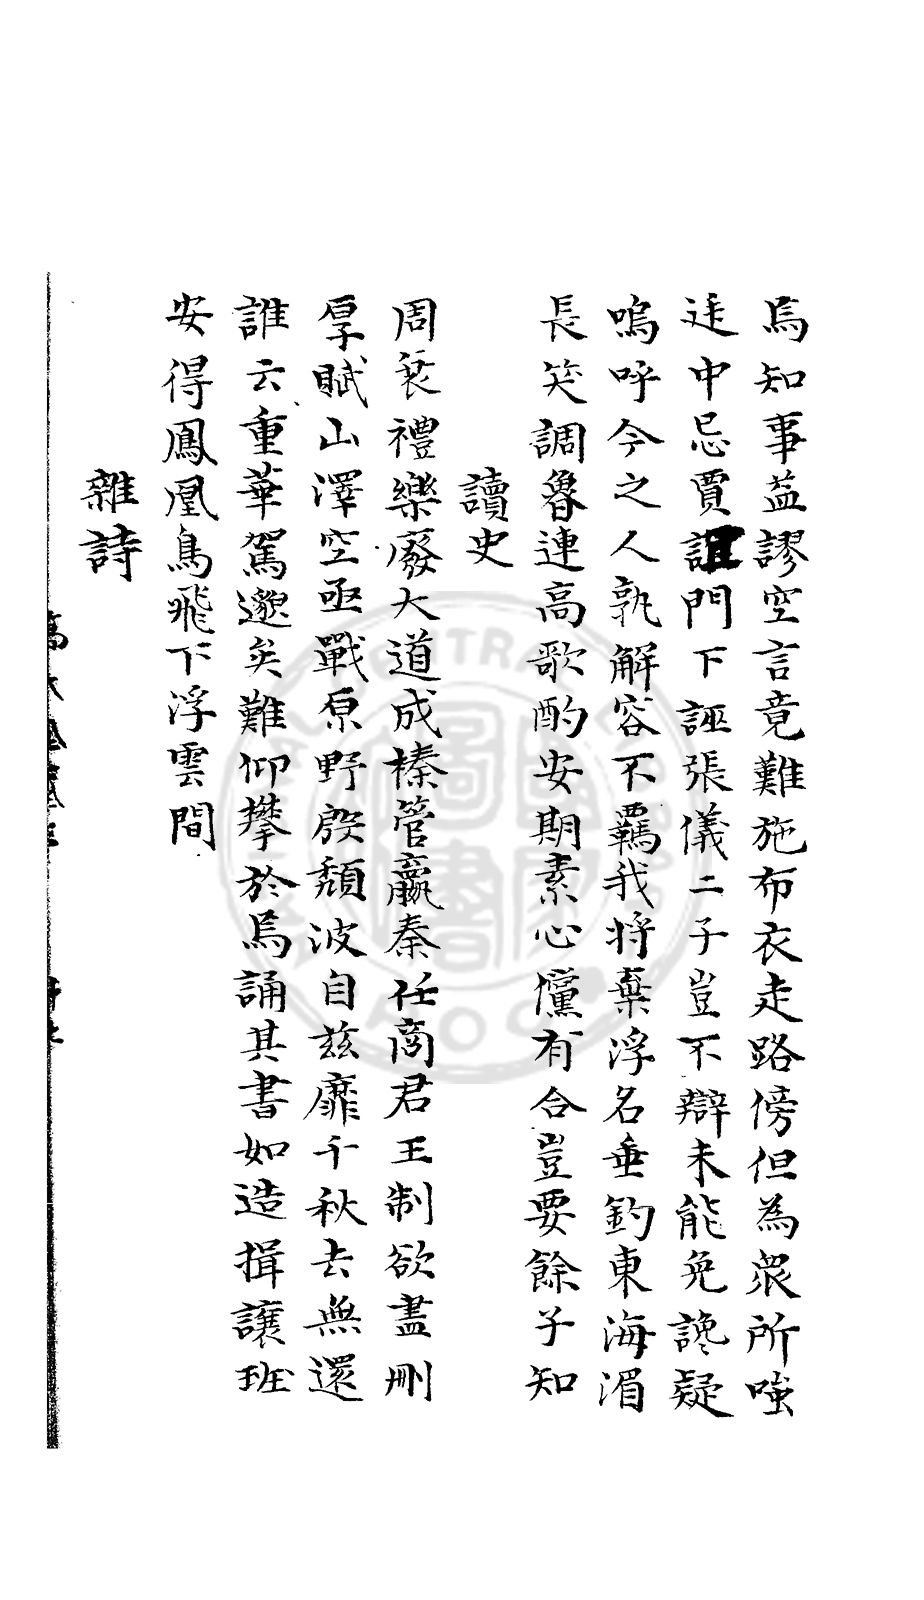 焉知事益謬空言竟難施布衣走路傍但為衆所嗤
廷中忌賈誼門下誣張儀二子豈不辯未能免讒疑
嗚呼今之人孰解容不羈我將棄浮名垂釣東海湄
長笑調魯連高歌酌安期素心儻有合豈要餘子知
讀史
周衰禮樂廢大道成榛管嬴秦任商君王制欲盡刪
厚賦山澤空亟戰原野殷頽波自茲靡千秋去無還
誰云重華駕邈矣難仰攀於焉誦其書如造揖讓班
安得鳳凰鳥飛下浮雲間
雜詩